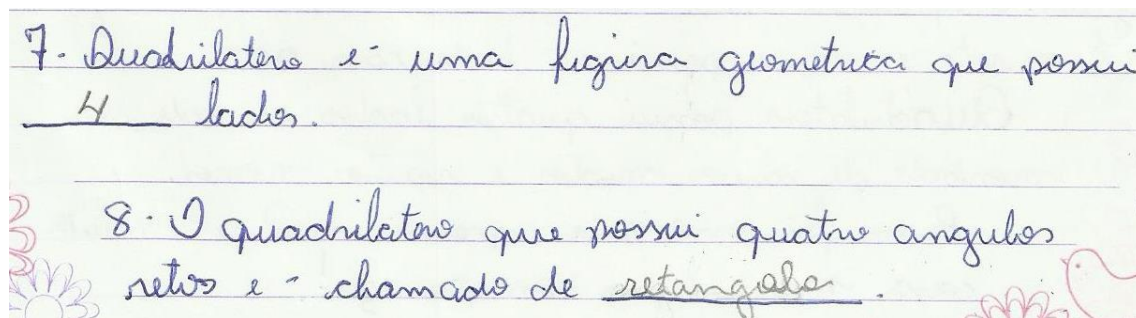 7. Quadrilatero é uma figura geometrica que possui
4 lados.
8. O quadrilatero que possui quatro angulos
retos é chamado de retangolo.